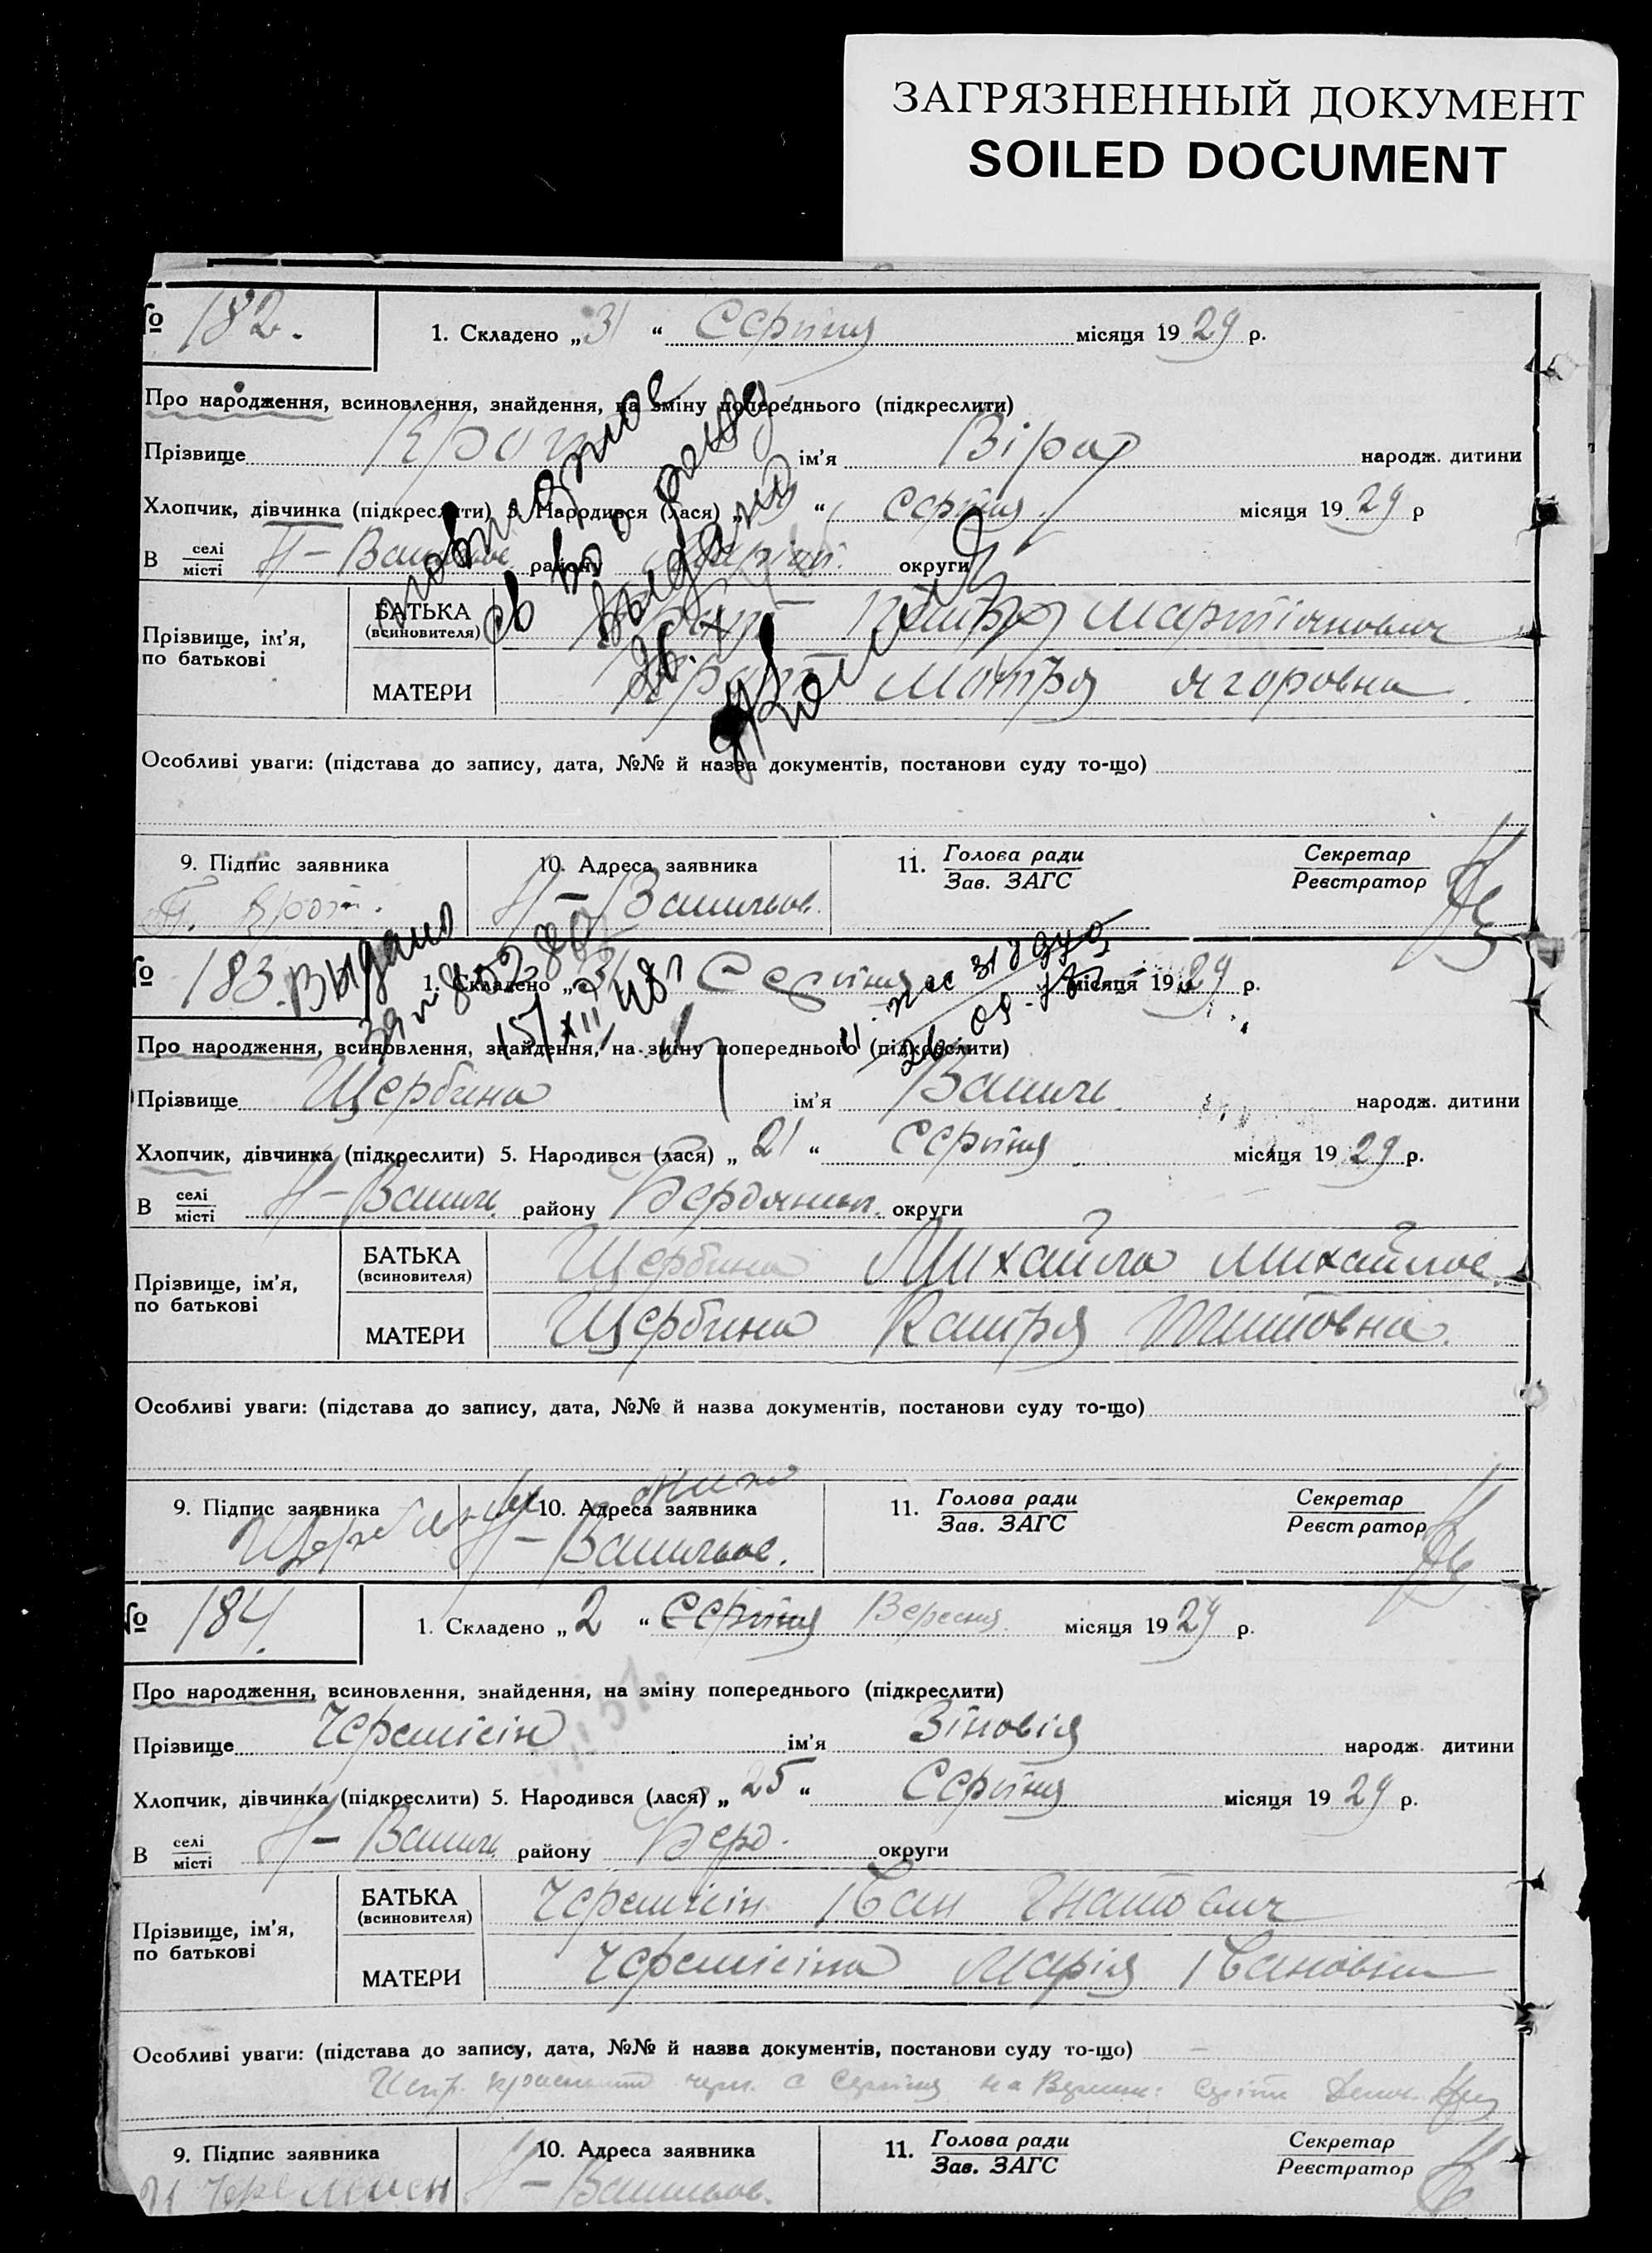 ЗАГРЯЗНЕННЫЙ ДОКУМЕНТ
SOILED DOCUMENT
№ 182. 1. Складено „31“ Серпня місяця 1929 р.
Про народження, всиновлення, знайдення, на зміну попереднього (підкреслити)
Прізвище Крот ім'я Віра народж. дитини
Хлопчик, дівчинка (підкреслити) 5. Народився (лася) „ “ серпня місяця 1929 р
В селі/місті Н-Васильов району округи
Прізвище, ім'я, по батькові
БАТЬКА (всиновителя) Крот Петро Мартінович
МАТЕРИ Крот Мотря Ягоровна
повторное
св во о рожд
выдано
26.XI
Особливі уваги: (підстава до запису, дата, №№ й назва документів, постанови суду то-що)
9. Підпис заявника 10. Адреса заявника 11. Голова ради/Зав. ЗАГС Секретар/Реєстратор
П. Крот. Н-Васильов.
№ 183. 1. Складено „31“ Серпня місяця 1929 р.
Выдано
15/XII 48 г
Про народження, всиновлення, знайдення, на зміну попереднього (підкреслити)
Прізвище Щербина ім'я Василь народж. дитини
Хлопчик, дівчинка (підкреслити) 5. Народився (лася) „21“ Серпня місяця 1929 р.
В селі/місті Н-Васил. району Бердянськ. округи
Прізвище, ім'я, по батькові
БАТЬКА (всиновителя) Щербина Михайло Михайлов.
МАТЕРИ Щербина Катря Титовна.
Особливі уваги: (підстава до запису, дата, №№ й назва документів, постанови суду то-що)
9. Підпис заявника 10. Адреса заявника 11. Голова ради/Зав. ЗАГС Секретар/Реєстратор
Щербина Н-Васильов.
№ 184. 1. Складено „2“ Серпня Вересня місяця 1929 р.
Про народження, всиновлення, знайдення, на зміну попереднього (підкреслити)
Прізвище Черемісін ім'я Зіновія народж. дитини
Хлопчик, дівчинка (підкреслити) 5. Народився (лася) „25“ Серпня місяця 1929 р.
В селі/місті Н-Васил. району Берд. округи
Прізвище, ім'я, по батькові
БАТЬКА (всиновителя) Черемісін Іван Гнатович
МАТЕРИ Черемісіна Марія Івановна
Особливі уваги: (підстава до запису, дата, №№ й назва документів, постанови суду то-що)
с Серпня на Вересн.
9. Підпис заявника 10. Адреса заявника 11. Голова ради/Зав. ЗАГС Секретар/Реєстратор
И Черемисин Н-Васильов.